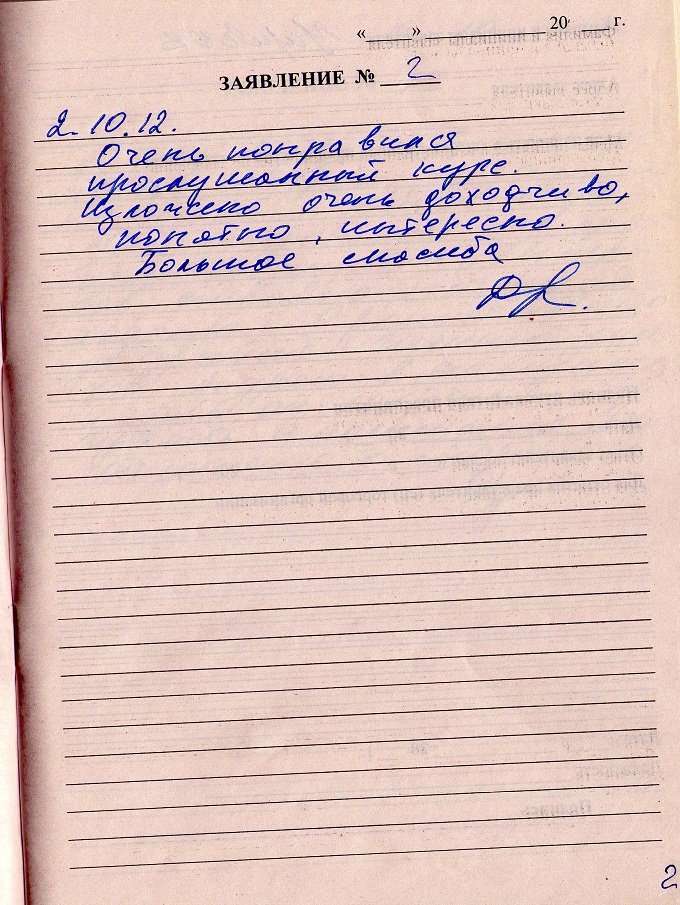 «____» ________ 20 г.
ЗАЯВЛЕНИЕ № 2
2.10.12.
Очень понравился
прослушанный курс.
Изложено очень доходчиво,
понятно, интересно.
Большое спасибо
2